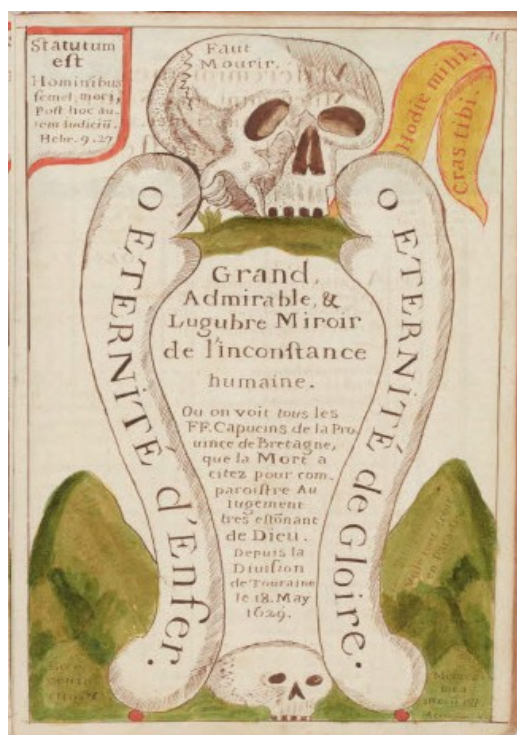 Statutum
est
Hominibus
semel mori,
Post hoc au-
tem Iudiciũ.
Hebr. 9. 27
Faut
Mourir.
Hodie mihi.
Cras tibi.
O ETERNITÉ d'Enfer.
O ETERNITÉ de Gloire.
Grand,
Admirable, &
Lugubre Miroir
de l'inconstance
humaine.
Ou on voit tous les
FF. Capucins de la Pro
uince de Bretagne,
que la Mort a
citez pour com-
paroistre Au
Iugement
tres estõnant
de Dieu.
Depuis la
Diuision
de Touraine
le 18. May
1629.